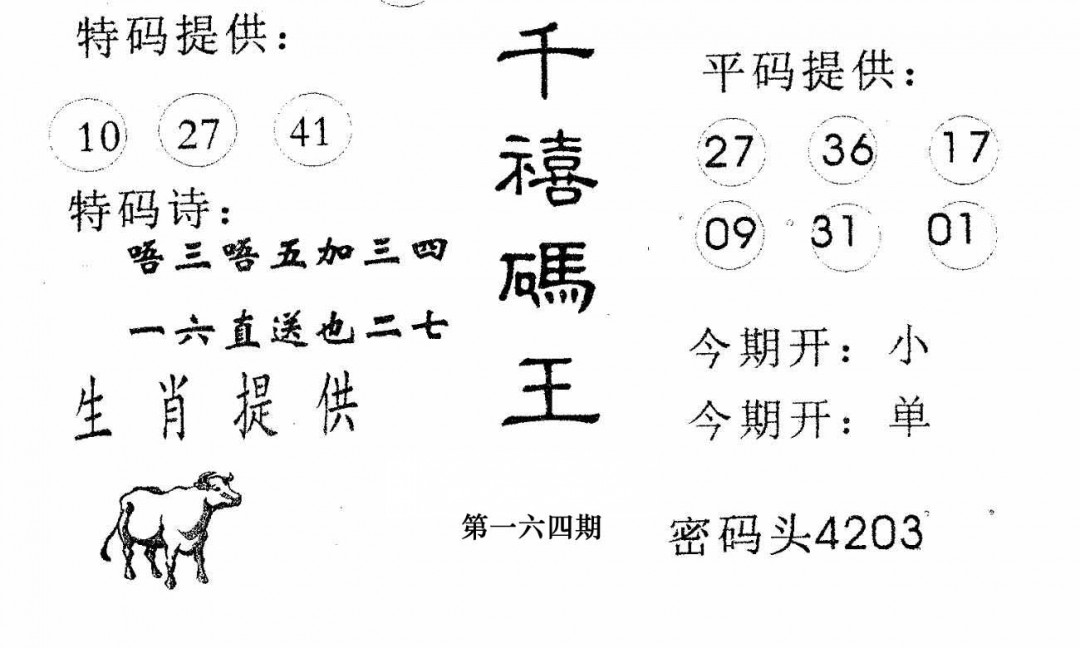 特码提供：
10 27 41
特码诗：
唔三唔五加三四
一六直送也二七
生肖提供
千禧碼王
第一六四期
平码提供：
27 36 17
09 31 01
今期开：小
今期开：单
密码头4203